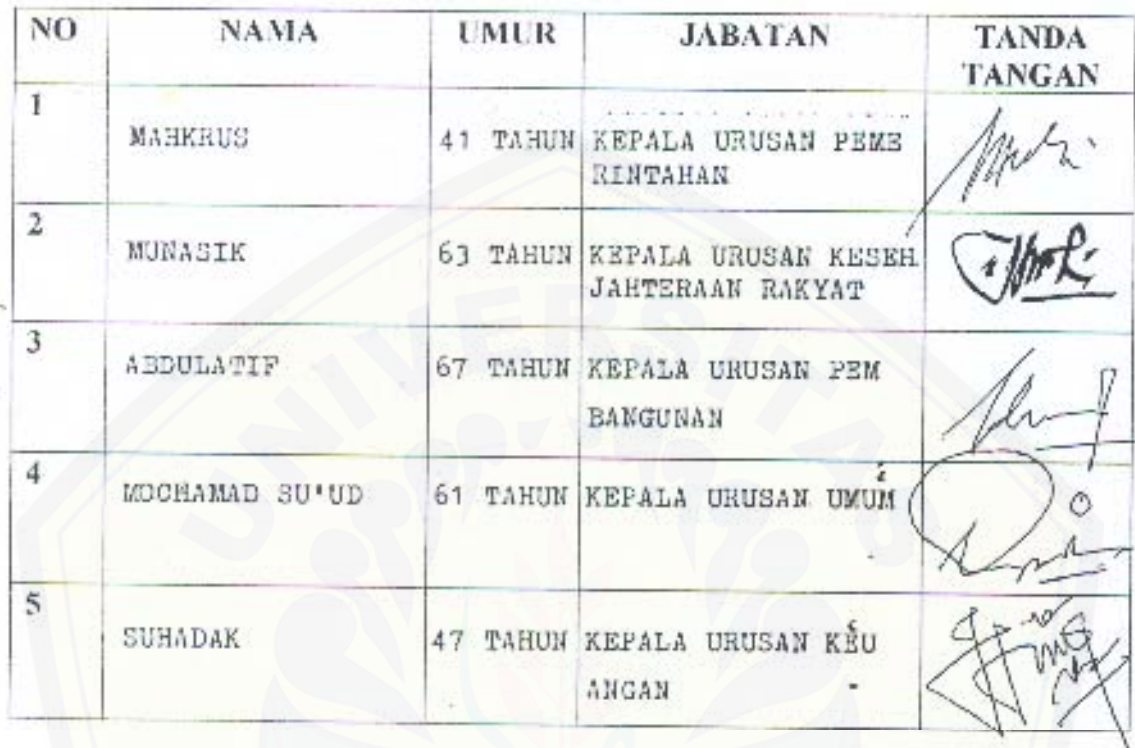 NO NAMA UMUR JABATAN TANDA
TANGAN
1
MAHKRUS 41 TAHUN KEPALA URUSAN PEME
RINTAHAN
2
MUNASIK 63 TAHUN KEPALA URUSAN KESEH
JAHTERAAN RAKYAT
3
ABDULATIF 67 TAHUN KEPALA URUSAN PEM
BANGUNAN
4
MOCHAMAD SU'UD 61 TAHUN KEPALA URUSAN UMUM
5
SUHADAK 47 TAHUN KEPALA URUSAN KEU
ANGAN
UNIVERSITAS